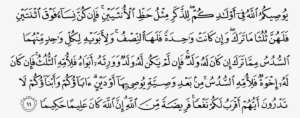 يُوصِيكُمُ اللَّهُ فِي أَوْلَادِكُمْ لِلذَّكَرِ مِثْلُ حَظِّ الْأُنثَيَيْنِ فَإِن كُنَّ نِسَاءً فَوْقَ اثْنَتَيْنِ
فَلَهُنَّ ثُلُثَا مَا تَرَكَ وَإِن كَانَتْ وَاحِدَةً فَلَهَا النِّصْفُ وَلِأَبَوَيْهِ لِكُلِّ وَاحِدٍ مِّنْهُمَا
السُّدُسُ مِمَّا تَرَكَ إِن كَانَ لَهُ وَلَدٌ فَإِن لَّمْ يَكُن لَّهُ وَلَدٌ وَوَرِثَهُ أَبَوَاهُ فَلِأُمِّهِ الثُّلُثُ فَإِن كَانَ
لَهُ إِخْوَةٌ فَلِأُمِّهِ السُّدُسُ مِن بَعْدِ وَصِيَّةٍ يُوصِي بِهَا أَوْ دَيْنٍ آبَاؤُكُمْ وَأَبْنَاؤُكُمْ لَا
تَدْرُونَ أَيُّهُمْ أَقْرَبُ لَكُمْ نَفْعًا فَرِيضَةً مِّنَ اللَّهِ إِنَّ اللَّهَ كَانَ عَلِيمًا حَكِيمًا ١١